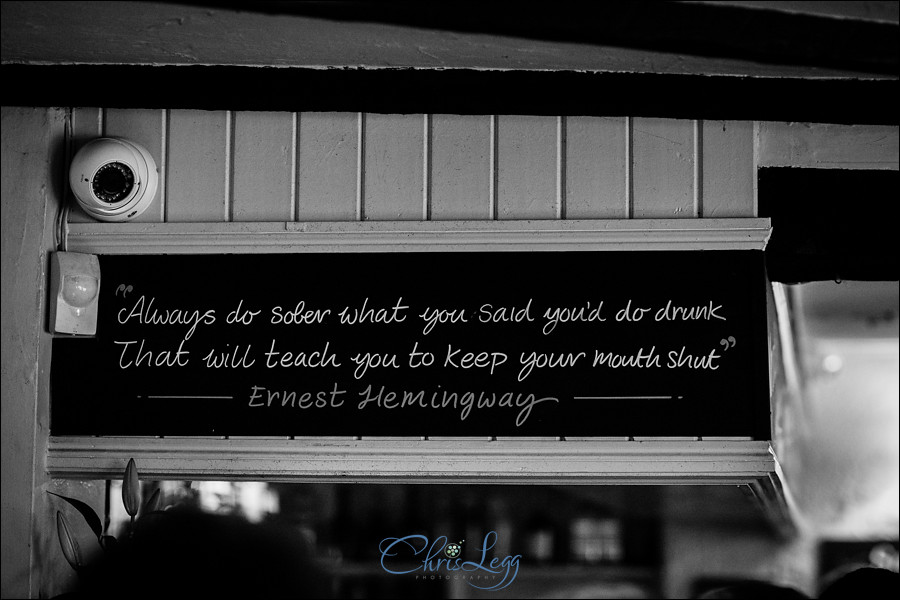 “Always do sober what you said you'd do drunk
That will teach you to keep your mouth shut”
Ernest Hemingway
Chris Legg
PHOTOGRAPHY